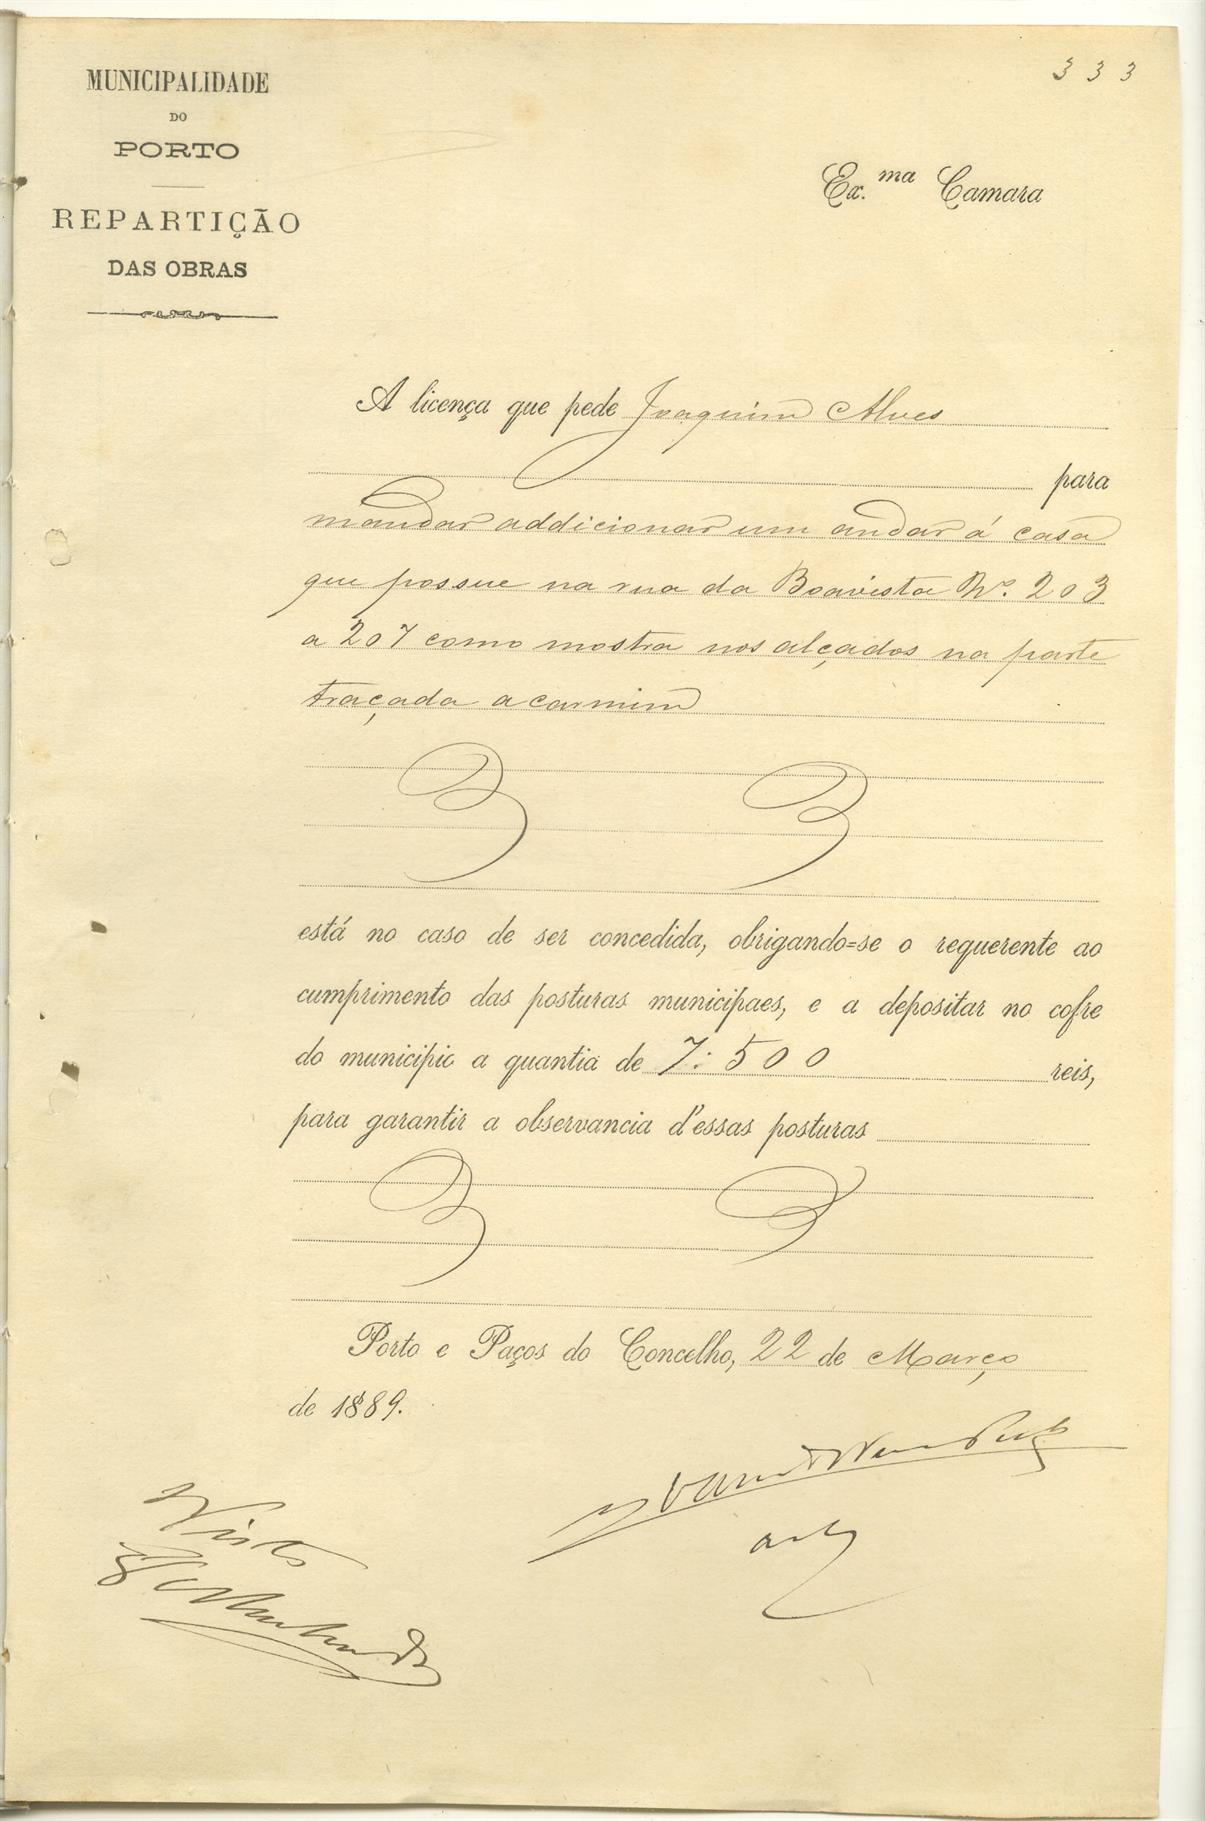 333
MUNICIPALIDADE
DO
PORTO
REPARTIÇÃO
DAS OBRAS
Ex.ma Camara
A licença que pede Joaquim Alves
para
mandar addicionar um andar á casa
que possue na rua da Boavista Nº. 203
a 207 como mostra nos alçados na parte
traçada a carmim
está no caso de ser concedida, obrigando=se o requerente ao
cumprimento das posturas municipaes, e a depositar no cofre
do municipio a quantia de 7:500 reis,
para garantir a observancia d'essas posturas
Porto e Paços do Concelho, 22 de Março
de 1889.
Visto